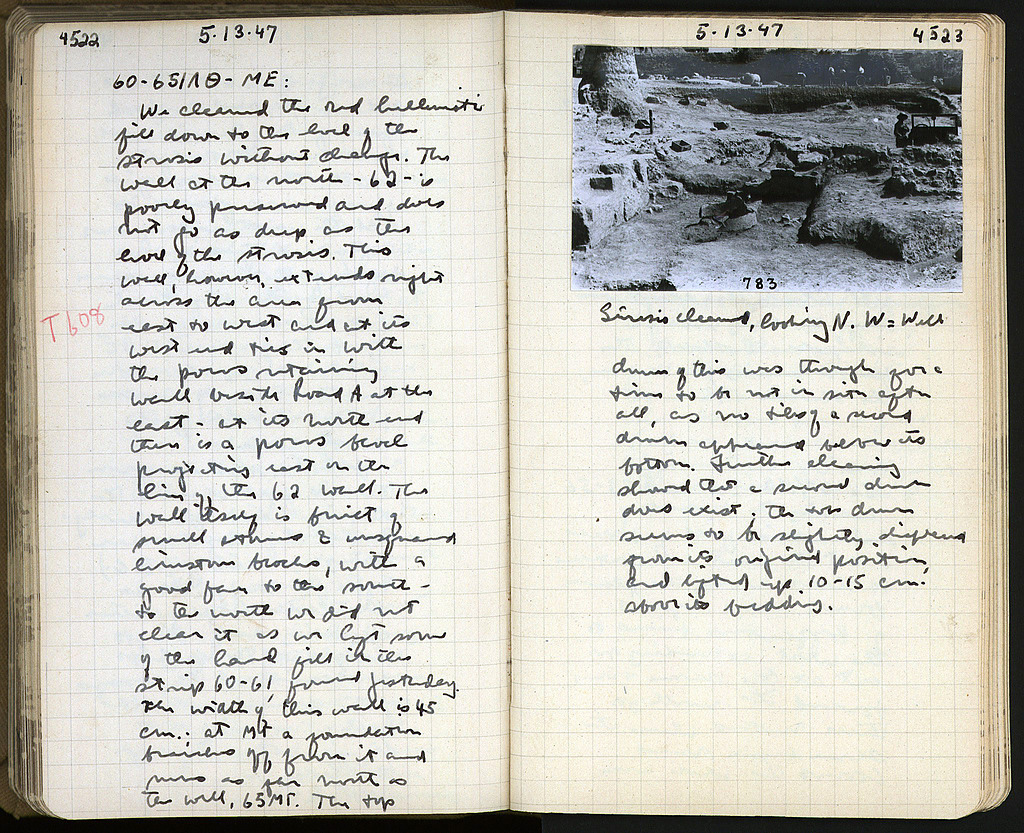 4522
5·13·47
60-65/ΛΘ - ΜΕ:
We cleaned the red bullemitic
fill down to the level of the
strosis without change. The
wall at the north - 62 - is
poorly preserved and does
not go as deep as the
level of the strosis. This
wall, however, extends right
across the area from
east to west and at its
west end ties in with
the poros retaining
wall beside Road A at the
east - at its north end
there is a poros
projecting east on the
line of the 62 wall. The
wall itself is built of
small stones & unsquared
limestone blocks, with a
good face to the south -
to the north we did not
clear it as we left some
of the hard fill in the
strip 60-61, found yesterday.
The width of this wall is 45
cm.: at ΜΓ a foundation
branches off from it and
runs as far north as
the well, 65ΜΓ. The top
T608
5·13·47
4523
783
Strosis cleaned, looking N. W = Well
drum of this was thought for a
time to be not in situ after
all, as no tiles of a second
drum appeared below its
bottom. Further cleaning
showed that a second drum
does exist. The top drum
seems to be slightly displaced
from its original position,
and lifted up 10-15 cm.
above its bedding.